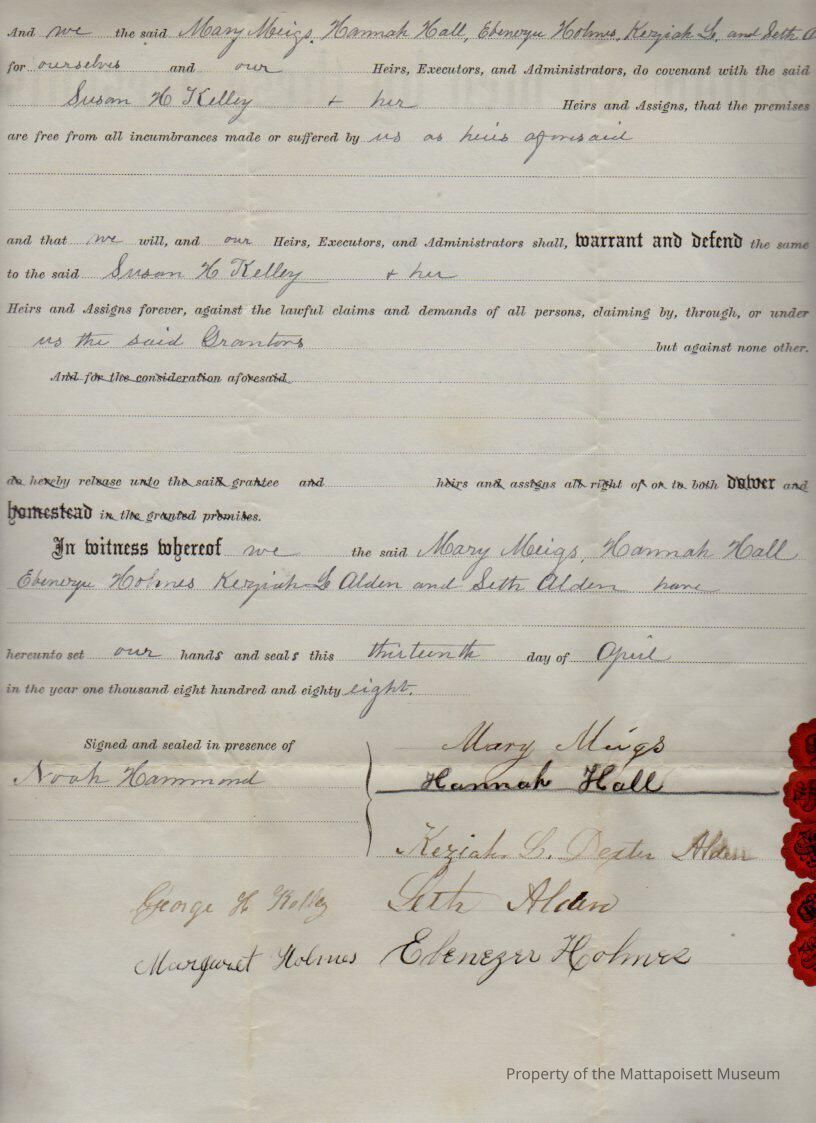 And we the said Mary Meigs, Hannah Hall, Ebenezer Holmes, Keziah L. and Seth A
for ourselves and our Heirs, Executors, and Administrators, do covenant with the said
Susan H Kelley + her Heirs and Assigns, that the premises
are free from all incumbrances made or suffered by us as heirs aforesaid
and that we will, and our Heirs, Executors, and Administrators shall, warrant and defend the same
to the said Susan H Kelley + her
Heirs and Assigns forever, against the lawful claims and demands of all persons, claiming by, through, or under
us the said Grantors but against none other.
And for the consideration aforesaid
do hereby release unto the said grantee and heirs and assigns all right of or to both dower and
homestead in the granted premises.
In witness whereof we the said Mary Meigs, Hannah Hall
Ebenezer Holmes Keziah L Alden and Seth Alden have
hereunto set our hands and seals this thirteenth day of April
in the year one thousand eight hundred and eighty eight.
Signed and sealed in presence of Mary Meigs
Noah Hammond Hannah Hall
Keziah L. Dexter Alden
George H Kelley Seth Alden
Margaret Holmes Ebenezer Holmes
Property of the Mattapoisett Museum